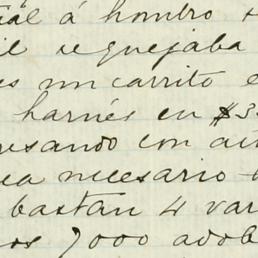 ial á hombro
il se quejaba
es un carrito e
harnés en $3
esando con
ea necesario
bastan 4 var
os 7000 adob